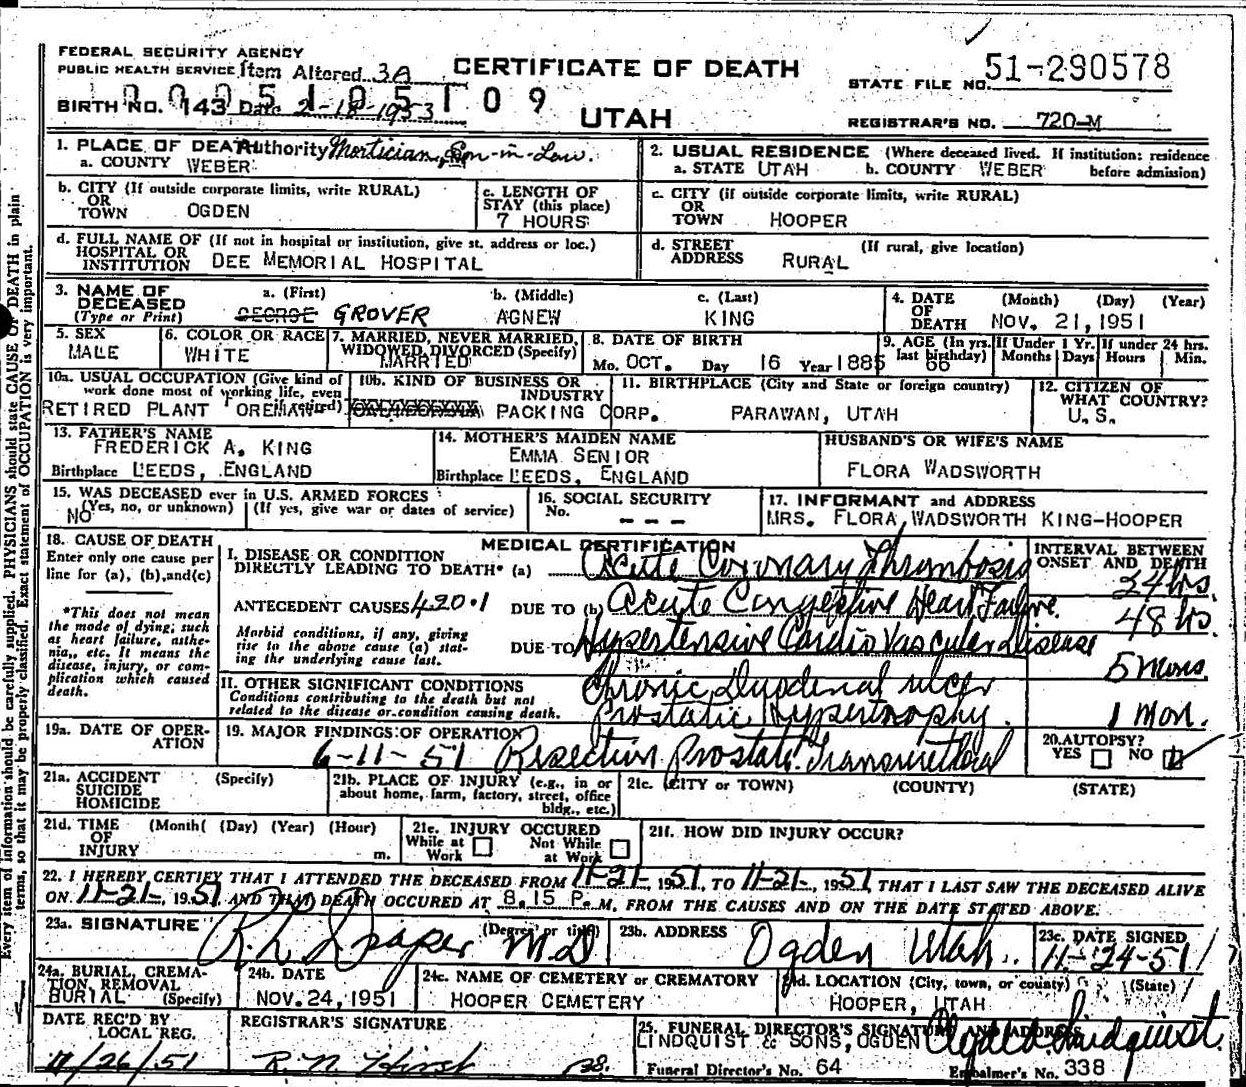 FEDERAL SECURITY AGENCY
PUBLIC HEALTH SERVICE Item Altered 3A
CERTIFICATE OF DEATH
STATE FILE NO. 51-290578
BIRTH NO. 143 Date 2-18-1953
UTAH
REGISTRAR'S NO. 720-M
1. PLACE OF DEATH Authority Mortician, Son-in-Law
a. COUNTY WEBER
2. USUAL RESIDENCE (Where deceased lived. If institution: residence before admission)
a. STATE UTAH b. COUNTY WEBER
b. CITY (If outside corporate limits, write RURAL)
OR
TOWN OGDEN
c. LENGTH OF
STAY (this place)
7 HOURS
c. CITY (if outside corporate limits, write RURAL)
OR
TOWN HOOPER
d. FULL NAME OF (If not in hospital or institution, give st. address or loc.)
HOSPITAL OR
INSTITUTION DEE MEMORIAL HOSPITAL
d. STREET (If rural, give location)
ADDRESS RURAL
3. NAME OF
DECEASED
(Type or Print)
a. (First) b. (Middle) c. (Last)
GEORGE GROVER AGNEW KING
4. DATE (Month) (Day) (Year)
OF
DEATH NOV. 21, 1951
5. SEX
MALE
6. COLOR OR RACE
WHITE
7. MARRIED, NEVER MARRIED,
WIDOWED, DIVORCED (Specify)
MARRIED
8. DATE OF BIRTH
Mo. OCT. Day 16 Year 1885
9. AGE (In yrs. last birthday) 66
If Under 1 Yr. Months Days
If under 24 hrs. Hours Min.
10a. USUAL OCCUPATION (Give kind of
work done most of working life, even
if retired)
RETIRED PLANT FOREMAN
10b. KIND OF BUSINESS OR
INDUSTRY
PACKING CORP.
11. BIRTHPLACE (City and State or foreign country)
PARAWAN, UTAH
12. CITIZEN OF
WHAT COUNTRY?
U.S.
13. FATHER'S NAME
FREDERICK A. KING
Birthplace LEEDS, ENGLAND
14. MOTHER'S MAIDEN NAME
EMMA SENIOR
Birthplace LEEDS, ENGLAND
HUSBAND'S OR WIFE'S NAME
FLORA WADSWORTH
15. WAS DECEASED ever in U.S. ARMED FORCES
(Yes, no, or unknown) (If yes, give war or dates of service)
NO
16. SOCIAL SECURITY
No. ---
17. INFORMANT and ADDRESS
MRS. FLORA WADSWORTH KING-HOOPER
18. CAUSE OF DEATH
Enter only one cause per
line for (a), (b), and (c)
*This does not mean
the mode of dying; such
as heart failure, asthe-
nia,, etc. It means the
disease, injury, or com-
plication which caused
death.
MEDICAL CERTIFICATION
I. DISEASE OR CONDITION
DIRECTLY LEADING TO DEATH* (a) Acute Coronary Thrombosis
INTERVAL BETWEEN
ONSET AND DEATH
24 hrs.
ANTECEDENT CAUSES 420.1 DUE TO (b) Acute Congestive Heart Failure. 48 hrs
Morbid conditions, if any, giving
rise to the above cause (a) stat-
ing the underlying cause last.
DUE TO Hypertensive Cardio Vascular disease 5 mons.
II. OTHER SIGNIFICANT CONDITIONS
Conditions contributing to the death but not
related to the disease or condition causing death.
Chronic Duodenal ulcer
Prostatic Hypertrophy. 1 mon.
19a. DATE OF OPER-
ATION
19. MAJOR FINDINGS OF OPERATION
6-11-51 Resection Prostate Transurethral
20. AUTOPSY?
YES NO
21a. ACCIDENT (Specify)
SUICIDE
HOMICIDE
21b. PLACE OF INJURY (e.g., in or
about home, farm, factory, street, office
bldg., etc.)
21c. (CITY or TOWN) (COUNTY) (STATE)
21d. TIME (Month( (Day) (Year) (Hour)
OF
INJURY m.
21e. INJURY OCCURED
While at Work Not While at Work
21f. HOW DID INJURY OCCUR?
22. I HEREBY CERTIFY THAT I ATTENDED THE DECEASED FROM 11-21-, 1951, TO 11-21-, 1951, THAT I LAST SAW THE DECEASED ALIVE
ON 11-21-, 1951 AND THAT DEATH OCCURED AT 8.15 P. M, FROM THE CAUSES AND ON THE DATE STATED ABOVE.
23a. SIGNATURE (Degree or title)
R L Draper M.D
23b. ADDRESS
Ogden Utah
23c. DATE SIGNED
11-24-51
24a. BURIAL, CREMA-
TION, REMOVAL
BURIAL (Specify)
24b. DATE
NOV. 24, 1951
24c. NAME OF CEMETERY or CREMATORY
HOOPER CEMETERY
24d. LOCATION (City, town, or county) (State)
HOOPER, UTAH
DATE REC'D BY
LOCAL REG.
11/26/51
REGISTRAR'S SIGNATURE
25. FUNERAL DIRECTOR'S SIGNATURE AND ADDRESS
LINDQUIST & SONS, OGDEN
Lindquist
Funeral Director's No. 64 Embalmer's No. 338
Every item of information should be carefully supplied. PHYSICIANS should state CAUSE OF DEATH in plain
terms, so that it may be properly classified. Exact statement of OCCUPATION is very important.